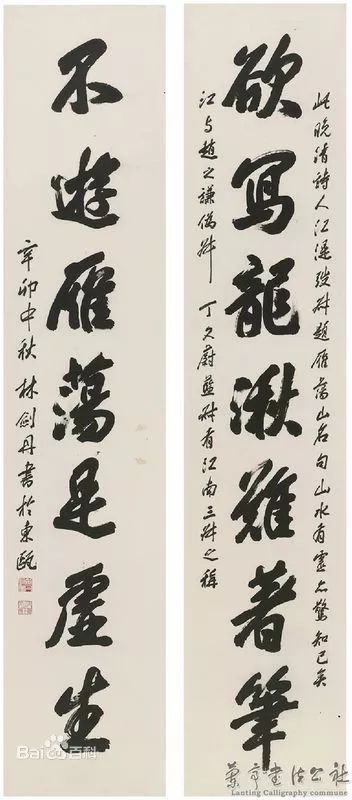 此晚清詩人江湜弢叔題雁蕩山名句山水有靈亦驚知己矣
欲寫龍湫難著筆
江与趙之謙撝叔 丁文蔚藍叔有江南三叔之稱
不遊雁蕩是虛生
辛卯中秋林劍丹書於東甌
Bai百科
蘭亭書法公社
Lanting Calligraphy commune